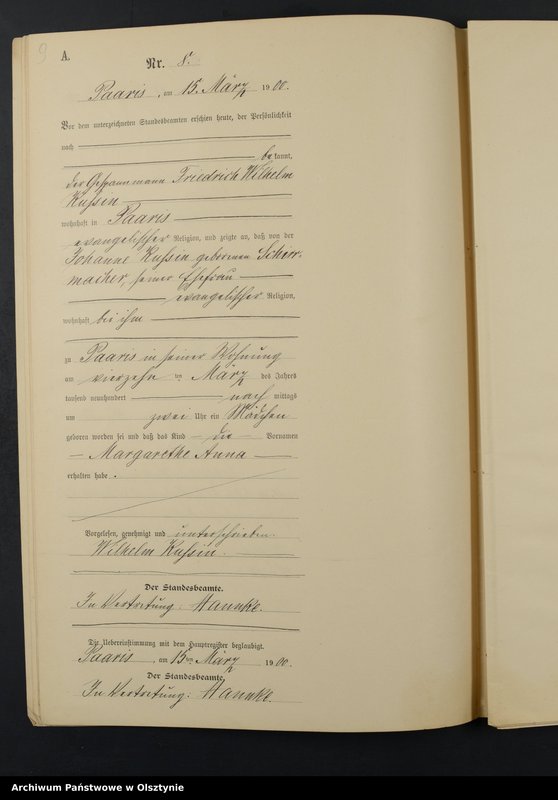 9
A.
Nr. 8.
Paaris, am 15. März 1900.
Vor dem unterzeichneten Standesbeamten erschien heute, der Persönlichkeit
nach
bekannt,
der Gespannmann Friedrich Wilhelm
Kussin
wohnhaft in Paaris
evangelischer Religion, und zeigte an, daß von der
Johanne Kussin geborenen Schirr-
macher, seiner Ehefrau
evangelischer Religion,
wohnhaft bei ihm
zu Paaris in seiner Wohnung
am vierzehnten März des Jahres
tausend neunhundert nach mittags
um zwei Uhr ein Mädchen
geboren worden sei und daß das Kind die Vornamen
Margarethe Anna
erhalten habe.
Vorgelesen, genehmigt und unterschrieben.
Wilhelm Kussin.
Der Standesbeamte.
In Vertretung: Hannke.
Die Uebereinstimmung mit dem Hauptregister beglaubigt.
Paaris, am 15ten März 1900.
Der Standesbeamte.
In Vertretung: Hannke.
Archiwum Państwowe w Olsztynie